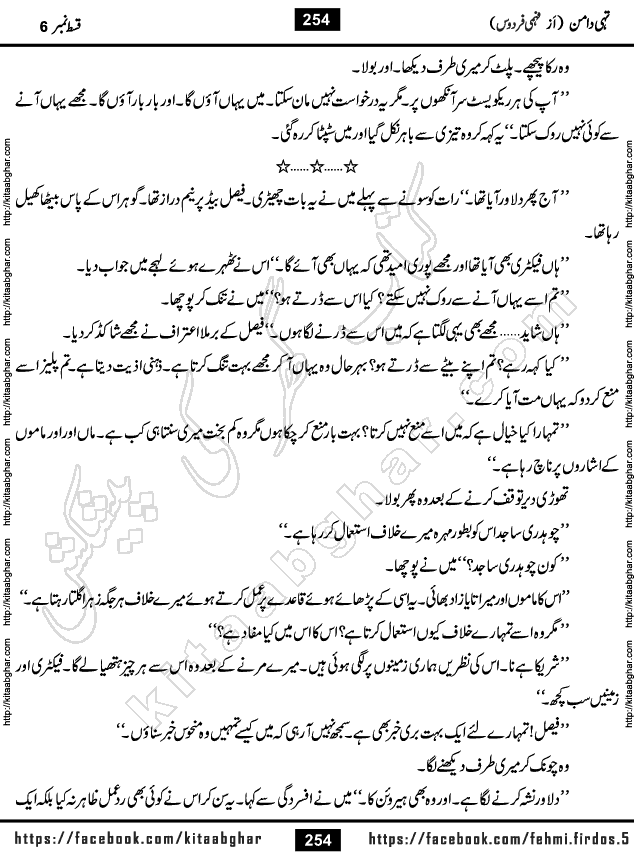 تہی دامن (از فہمی فردوس) 254 قسط نمبر 6
وہ رکا پیچھے۔ پلٹ کر میری طرف دیکھا۔ اور بولا۔
’’ آپ کی ہر ریکویسٹ سر آنکھوں پر۔ مگر یہ درخواست نہیں مان سکتا۔ میں یہاں آؤں گا۔ اور بار بار آؤں گا۔ مجھے یہاں آنے
سے کوئی نہیں روک سکتا۔‘‘ یہ کہہ کر وہ تیزی سے باہر نکل گیا اور میں سٹپٹا کر رہ گئی۔
☆......☆......☆
’’ آج پھر دلاور آیا تھا۔‘‘ رات کو سونے سے پہلے میں نے یہ بات چھیڑی۔ فیصل بیڈ پر نیم دراز تھا۔ گوہر اس کے پاس بیٹھا کھیل
رہا تھا۔
’’ہاں فیکٹری بھی آیا تھا اور مجھے پوری امید تھی کہ یہاں بھی آئے گا۔‘‘ اس نے ٹھہرے ہوئے لہجے میں جواب دیا۔
’’تم اسے یہاں آنے سے روک نہیں سکتے؟ کیا اس سے ڈرتے ہو؟‘‘ میں نے تنک کر پوچھا۔
’’ہاں شاید...... مجھے بھی یہی لگتا ہے کہ میں اس سے ڈرنے لگا ہوں۔‘‘ فیصل کے برملا اعتراف نے مجھے شاکڈ کر دیا۔
’’ کیا کہہ رہے؟ تم اپنے بیٹے سے ڈرتے ہو؟ بہر حال وہ یہاں آ کر مجھے بہت تنگ کرتا ہے۔ ذہنی اذیت دیتا ہے۔ تم پلیز اسے
منع کر دو کہ یہاں مت آیا کرے۔‘‘
’’تمہارا کیا خیال ہے کہ میں اسے منع نہیں کرتا؟ بہت بار منع کر چکا ہوں مگر وہ کم بخت میری سنتا ہی کب ہے۔ ماں اور اور ماموں
کے اشاروں پر ناچ رہا ہے۔‘‘
تھوڑی دیر توقف کرنے کے بعد وہ پھر بولا۔
’’چوہدری ساجد اس کو بطور مہرہ میرے خلاف استعمال کر رہا ہے۔‘‘
’’کون چوہدری ساجد؟‘‘ میں نے پوچھا۔
’’اس کا ماموں اور میرا تایا زاد بھائی۔ یہ اسی کے پڑھائے ہوئے قاعدے پر عمل کرتے ہوئے میرے خلاف ہر جگہ زہر اگلتا رہتا ہے۔‘‘
’’مگر وہ اسے تمہارے خلاف کیوں استعمال کرتا ہے؟ اس کا اس میں کیا مفاد ہے؟‘‘
’’شریکا ہے نا۔ اس کی نظریں ہماری زمینوں پر لگی ہوئی ہیں۔ میرے مرنے کے بعد وہ اس سے ہر چیز ہتھیا لے گا۔ فیکٹری اور
زمینیں سب کچھ۔‘‘
’’فیصل! تمہارے لئے ایک بہت بری خبر بھی ہے۔ سمجھ نہیں آ رہی کہ میں کیسے تمہیں وہ منحوس خبر سناؤں۔‘‘
وہ چونک کر میری طرف دیکھنے لگا۔
’’دلاور نشہ کرنے لگا ہے۔ اور وہ بھی ہیروئن کا۔‘‘ میں نے افسردگی سے کہا۔ یہ سن کر اس نے کوئی بھی ردعمل ظاہر نہ کیا بلکہ ایک
https://facebook.com/kitaabghar 254 https://facebook.com/fehmi.firdos.5
http://kitaabghar.com http://kitaabghar.com http://kitaabghar.com http://kitaabghar.com http://kitaabghar.com http://kitaabghar.com
http://kitaabghar.com http://kitaabghar.com http://kitaabghar.com http://kitaabghar.com http://kitaabghar.com http://kitaabghar.com
کتاب گھر کی پیشکش
kitaabghar.com